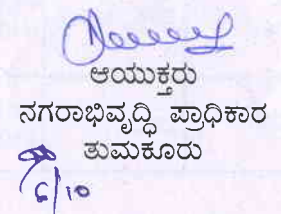 ಆಯುಕ್ತರು
ನಗರಾಭಿವೃದ್ಧಿ ಪ್ರಾಧಿಕಾರ
ತುಮಕೂರು
6/10